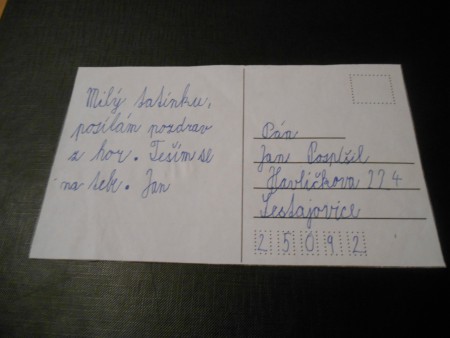 Milý tatínku,
posílám pozdrav
z hor. Teším se
na tebe. Jan
Pán
Jan Pospížil
Havlíčkova 224
Šestajovice
25092